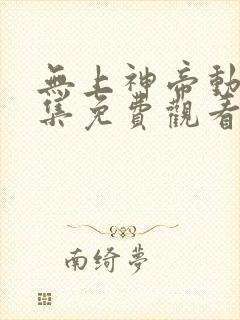 無上神帝動
集免費觀看
南绮夢